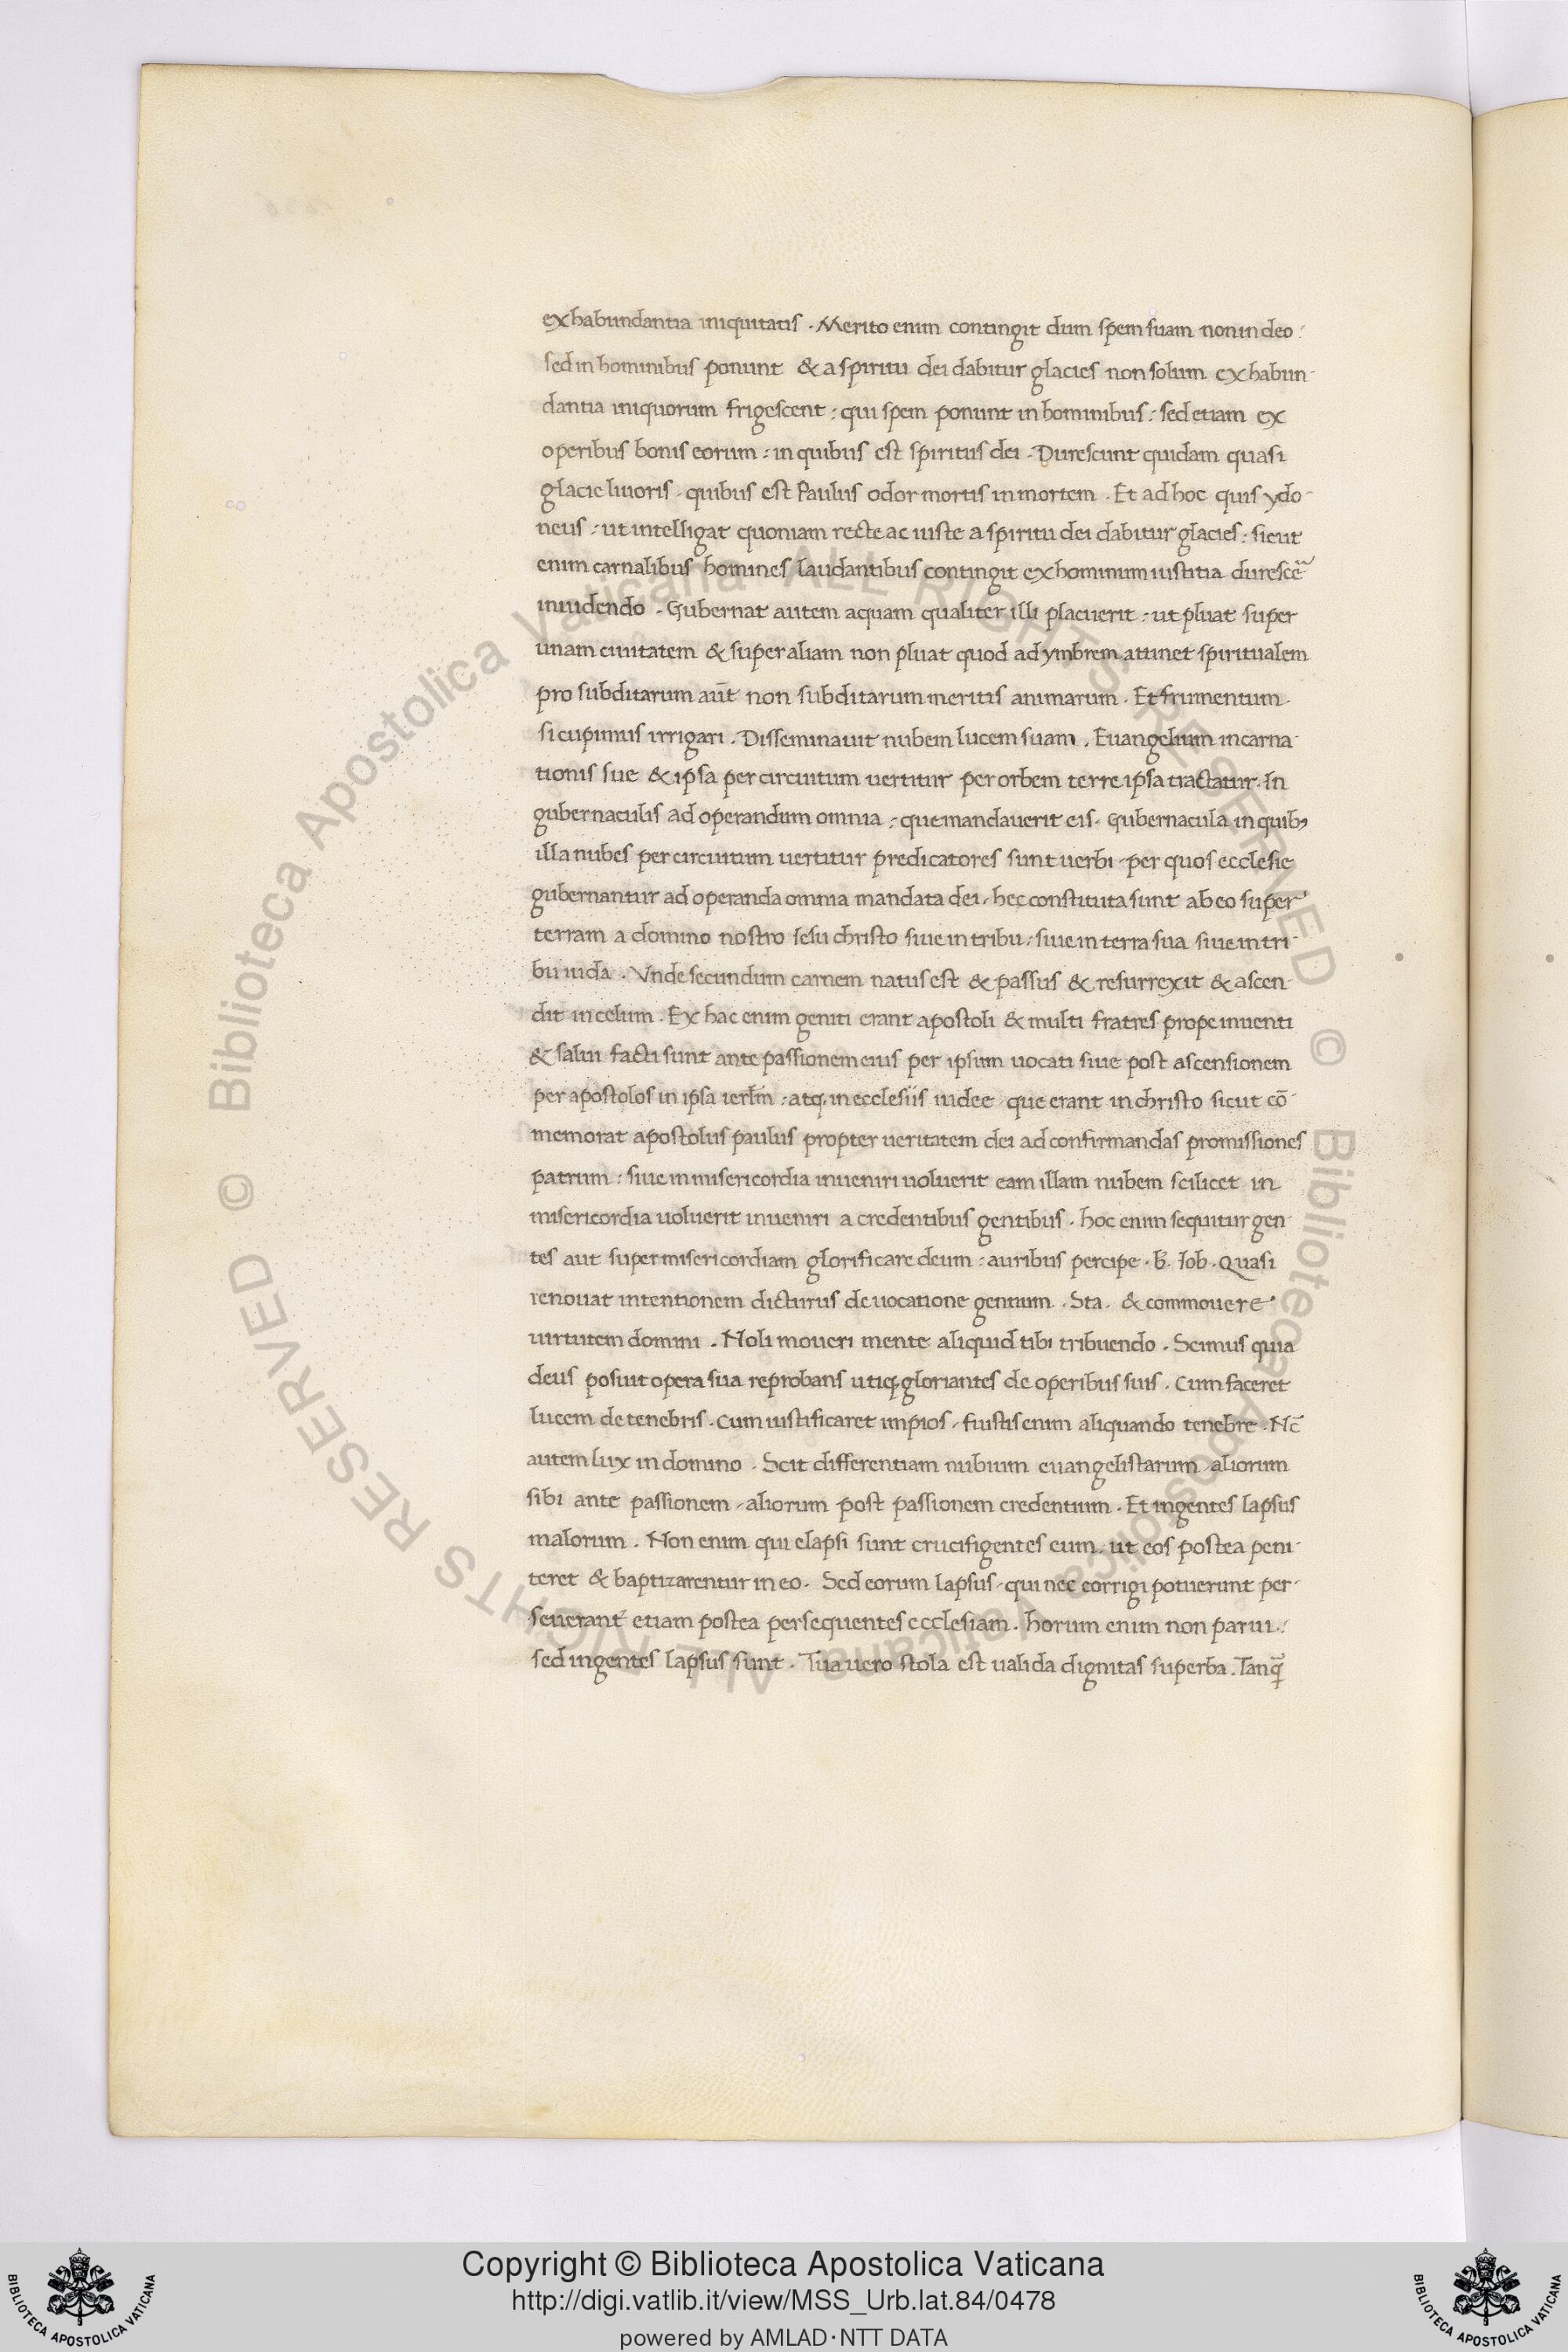 exhabundantia iniquitatis . Merito enim contingit dum spem suam non in deo :
sed in hominibus ponunt & a spiritu dei dabitur glacies non solum ex habun-
dantia iniquorum frigescent : qui spem ponunt in hominibus : sed etiam ex
operibus bonis eorum : in quibus est spiritus dei . Durescunt quidam quasi
glacie liuoris . quibus est Paulus odor mortis in mortem . Et ad hoc quis ydo-
neus : ut intelligat quoniam recte ac iuste a spiritu dei dabitur glacies : sicut
enim carnalibus homines laudantibus contingit ex hominum iustitia durescē
inuidendo . Gubernat autem aquam qualiter illi placuerit : ut pluat super
unam ciuitatem & super aliam non pluat quod ad ymbrem attinet spiritualem
pro subditarum aūt non subditarum meritis animarum . Et frumentum .
si cupimus irrigari . Disseminauit nubem lucem suam . Euangelium incarna-
tionis sue & ipsa per circuitum uertitur per orbem terre ipsa tractatur . In
gubernaculis ad operandum omnia : que mandauerit eis . Gubernacula in quib;
illa nubes per circuitum uertitur predicatores sunt uerbi . per quos ecclesie
gubernantur ad operanda omnia mandata dei . hec constituta sunt ab eo super
terram a domino nostro iesu christo siue in tribu : siue in terra sua siue in tri-
bu iuda . Vnde secundum carnem natus est & passus & resurrexit & ascen-
dit in celum . Ex hac enim geniti erant apostoli & multi fratres prope inuenti
& salui facti sunt ante passionem eius per ipsum uocati siue post ascensionem
per apostolos in ipsa ierl̄m : atq; in ecclesiis iudee que erant in christo sicut cō-
memorat apostolus paulus propter ueritatem dei ad confirmandas promissiones
patrum : siue in misericordia inueniri uoluerit eam illam nubem scilicet in
misericordia uoluerit inueniri a credentibus gentibus . hoc enim sequitur gen-
tes aut super misericordiam glorificare deum : auribus percipe . h̄ . Iob . Quasi
renouat intentionem dicturus de uocatione gentium . Sta . & commouere
uirtutem domini . Noli moueri mente aliquid tibi tribuendo . Scimus quia
deus posuit opera sua reprobans utiq; gloriantes de operibus suis . Cum faceret
lucem de tenebris . Cum iustificaret impios . fuistis enim aliquando tenebre . Nc̄
autem lux in domino . Scit differentiam nubium euangelistarum aliorum
sibi ante passionem . aliorum post passionem credentium . Et ingentes lapsus
malorum . Non enim qui elapsi sunt crucifigentes eum . ut eos postea peni-
teret & baptizarentur in eo . Sed eorum lapsus . qui nec corrigi potuerunt per-
seuerant etiam postea persequentes ecclesiam . horum enim non parui :
sed ingentes lapsus sunt . Tua uero stola est ualida dignitas superba . Tanq̄
Copyright © Biblioteca Apostolica Vaticana
http://digi.vatlib.it/view/MSS_Urb.lat.84/0478
powered by AMLAD·NTT DATA
BIBLIOTECA APOSTOLICA VATICANA
BIBLIOTECA APOSTOLICA VATICANA
© Biblioteca Apostolica Vaticana ALL RIGHTS RESERVED © Biblioteca Apostolica Vaticana ALL RIGHTS RESERVED